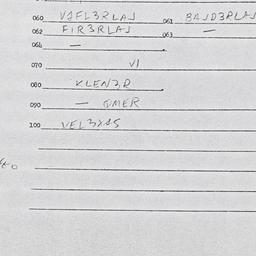 060 VJFL3RLAJ 061 BAJD3RLAJ
062 FIR3RLAJ 063 —
064 —
070 VI
080 KLEN3R
090 — GMER
100